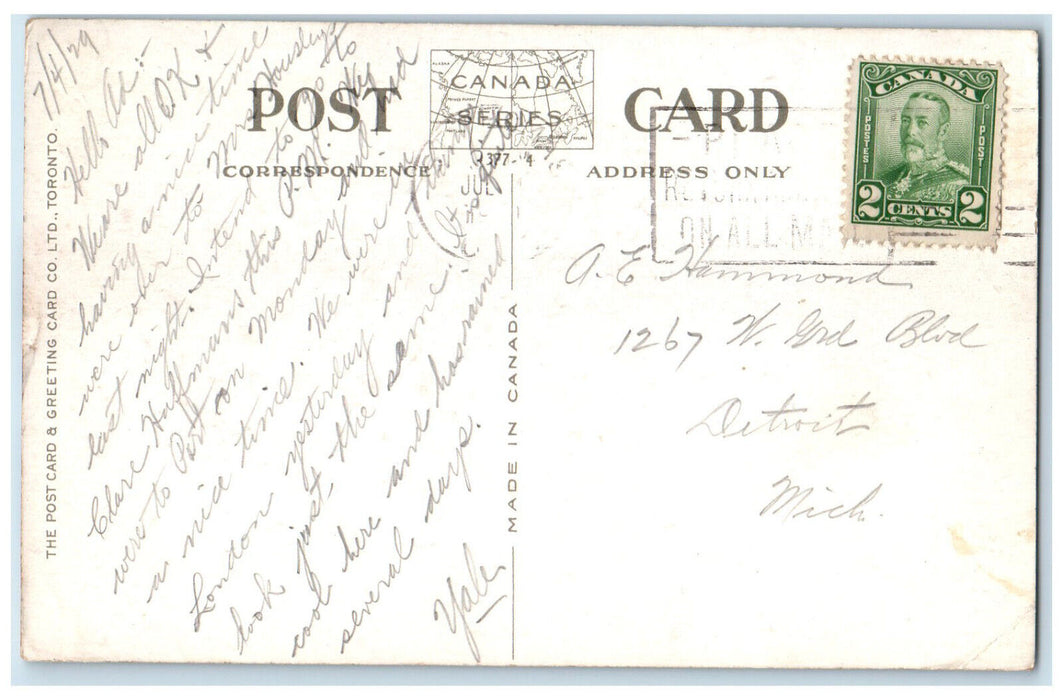 7/4/29
Hello Ad:-
We are all O.K. &
having a nice time
were over to Mrs Housley's
last night. Intend to go to
Clare Huffmans this P.M. They
were to Port on Monday and had
a nice time. We were in
London yesterday and
look just the same. (It is quite
cool here and has rained
several days.
Yale
POST CARD
CANADA
SERIES
CORRESPONDENCE
ADDRESS ONLY
JUL
4
ON ALL
CANADA
POSTES
POST
2 CENTS 2
A. E. Hammond
1267 W. Grd Blvd
Detroit
Mich.
MADE IN CANADA
THE POST CARD & GREETING CARD CO. LTD., TORONTO.